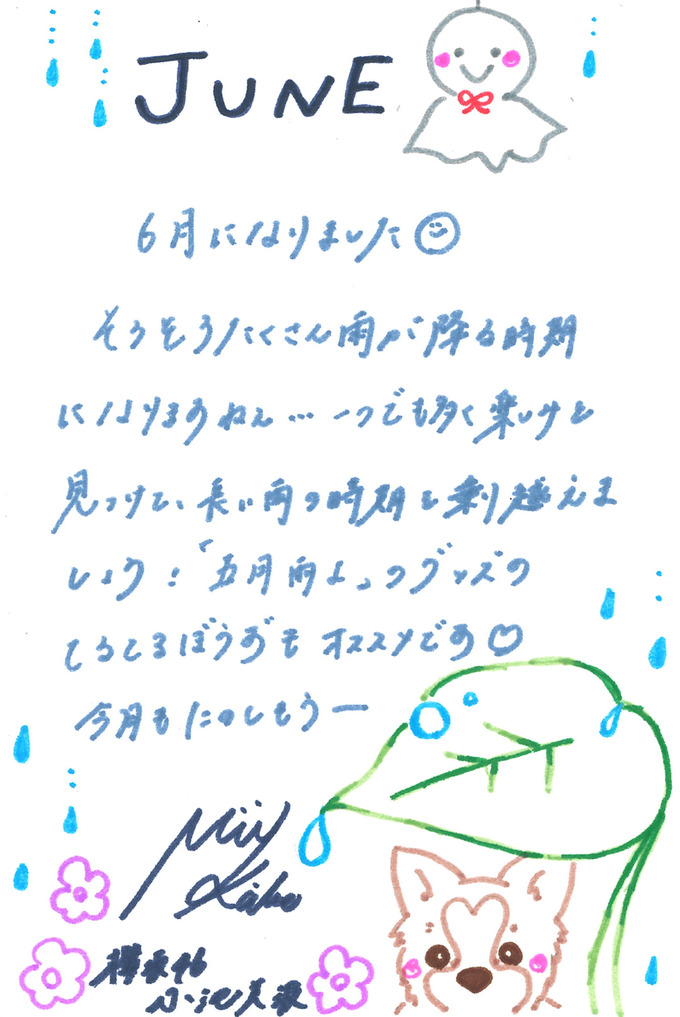 JUNE
6月になりました
そろそろたくさん雨が降る時期
になりますねぇ…一つでも多く楽しみを
見つけて、長い雨の時期を乗り越えま
しょう！「五月雨よ」のグッズの
てるてるぼうずもオススメです
今月もたのしもうー
欅坂46
小池美波